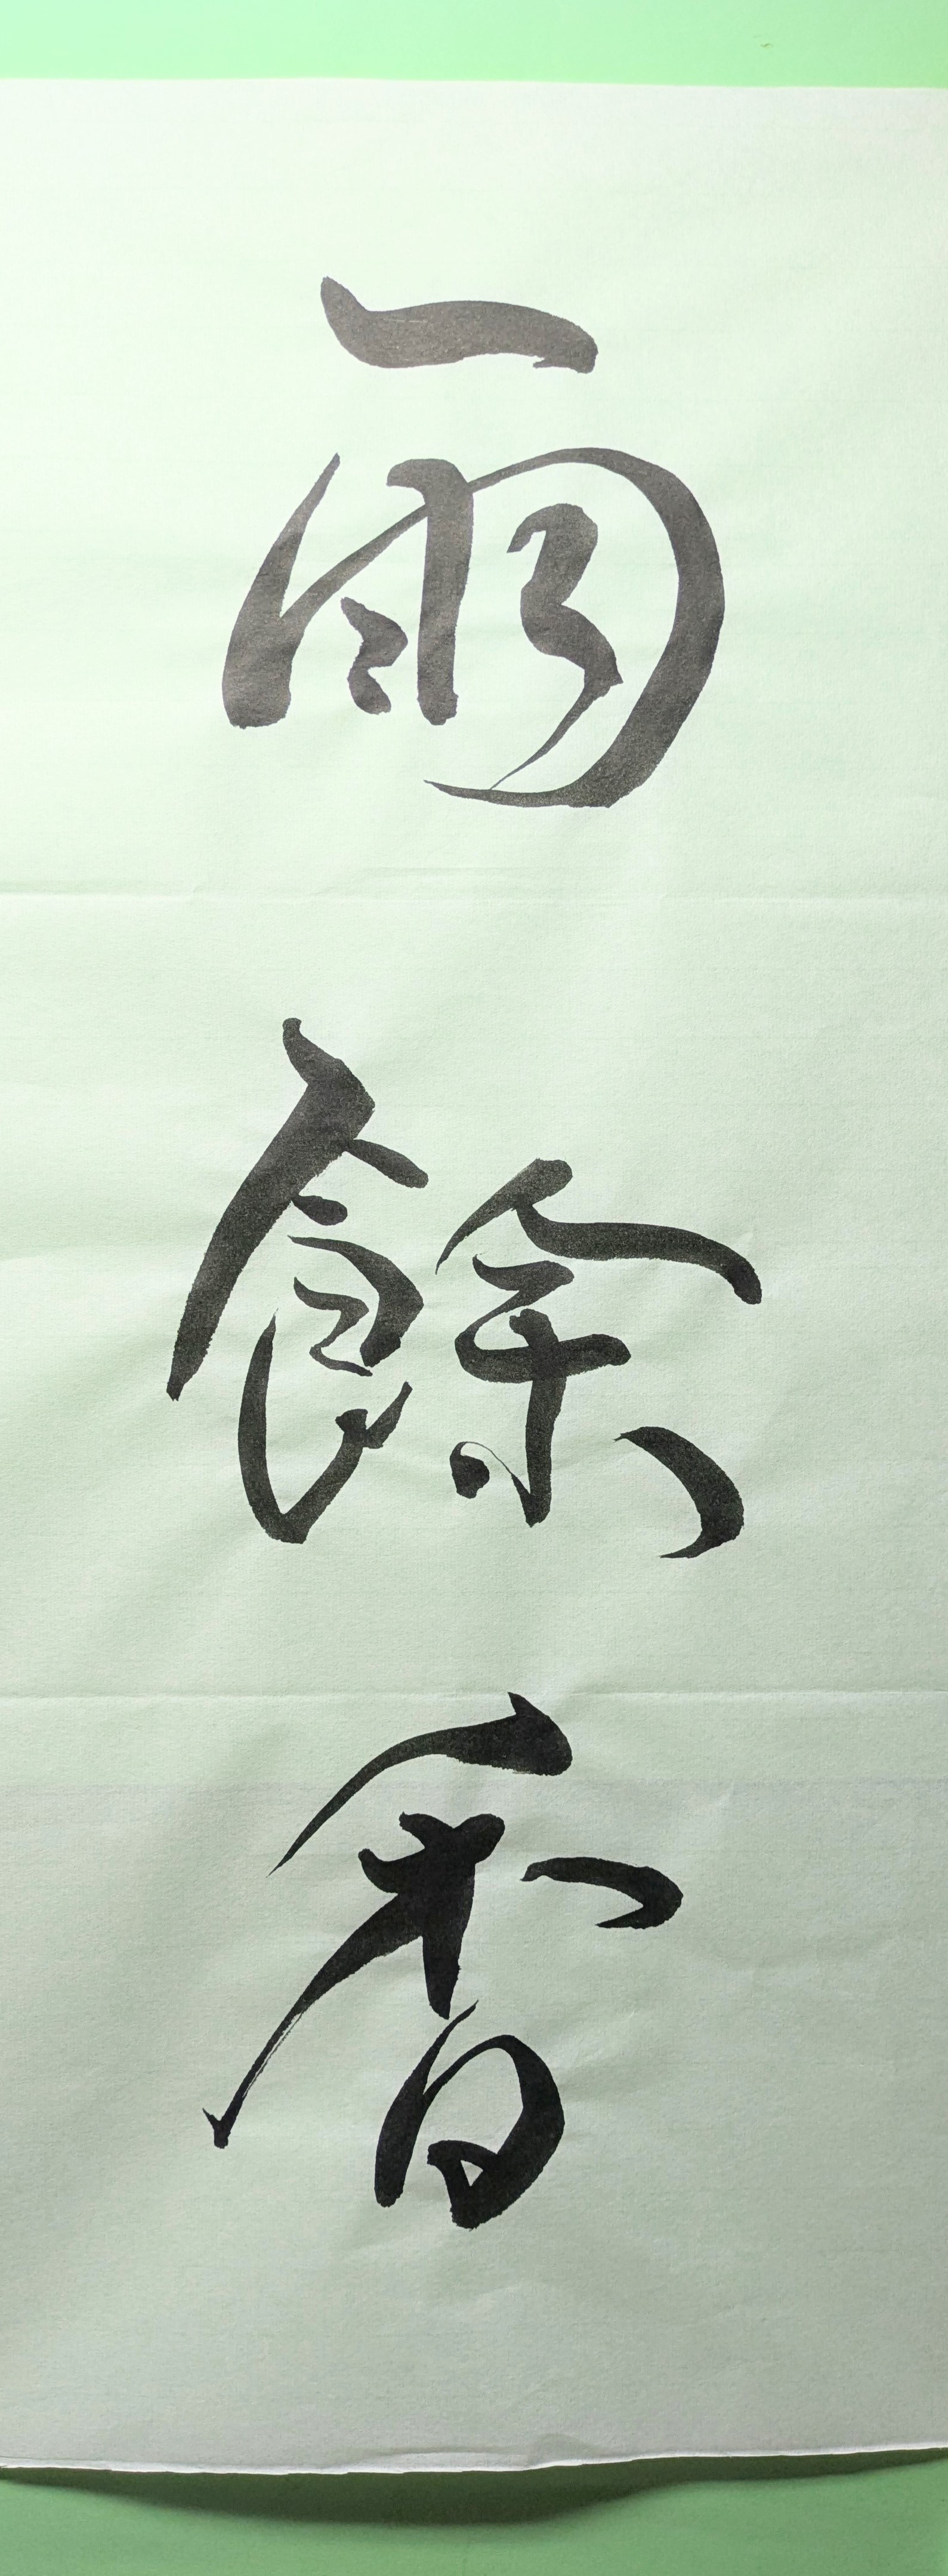 雨餘香